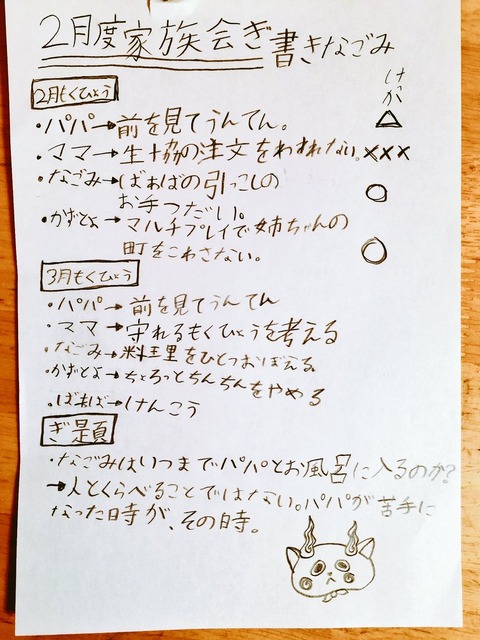 2月度家族会ぎ 書きなごみ
けっか
2月もくひょう
・パパ→前を見てうんてん。 △
・ママ→生協の注文をわすれない。×××
・なごみ→ばぁばの引っこしの ○
お手つだい。
・かずとよ→マルチプレイで姉ちゃんの
町をこわさない。 ○
3月もくひょう
・パパ→前を見てうんてん
・ママ→守れるもくひょうを考える
・なごみ→料理をひとつおぼえる
・かずとよ→ちょろっとちんちんをやめる
・ばぁば→けんこう
ぎ題
・なごみはいつまでパパとお風呂に入るのか?
→人とくらべることではない。パパが苦手に
なった時が、その時。